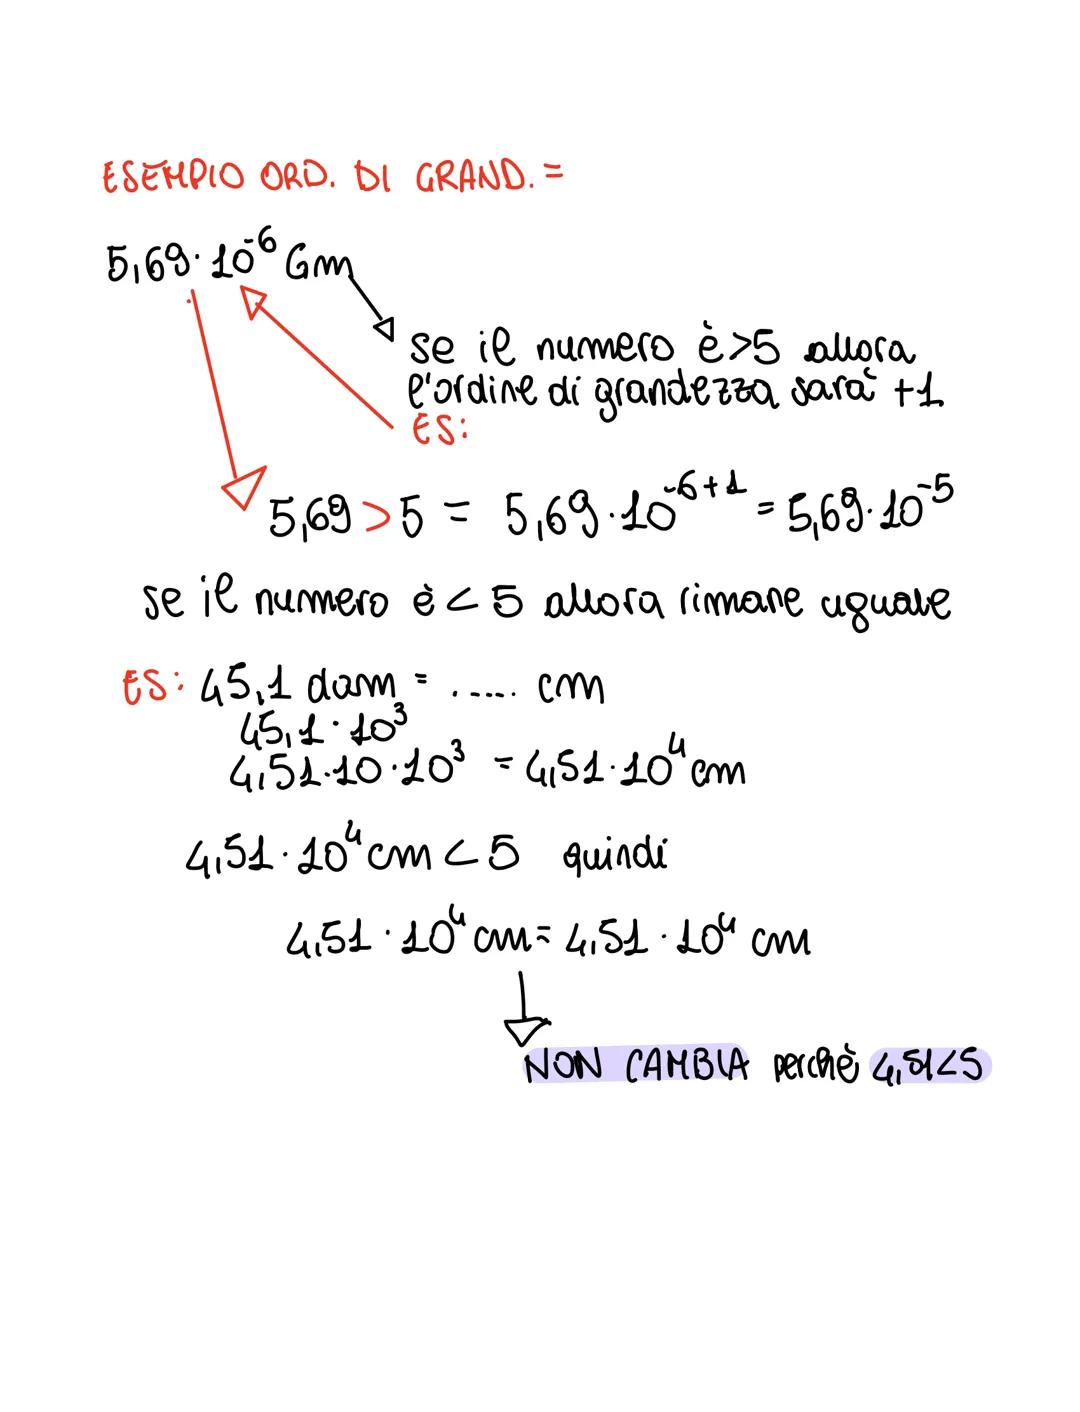 ESEMPIO ORD. DI GRAND. =
5,69 · 10⁻⁶ Gm
se il numero è >5 allora
l'ordine di grandezza sarà +1
ES:
5,69 > 5 = 5,69 · 10⁻⁶⁺¹ = 5,69 · 10⁻⁵
se il numero è < 5 allora rimane uguale
ES: 45,1 dam = ..... cm
45,1 · 10³
4,51 · 10 · 10³ = 4,51 · 10⁴ cm
4,51 · 10⁴ cm < 5 quindi
4,51 · 10⁴ cm = 4,51 · 10⁴ cm
NON CAMBIA perchè 4,51<5